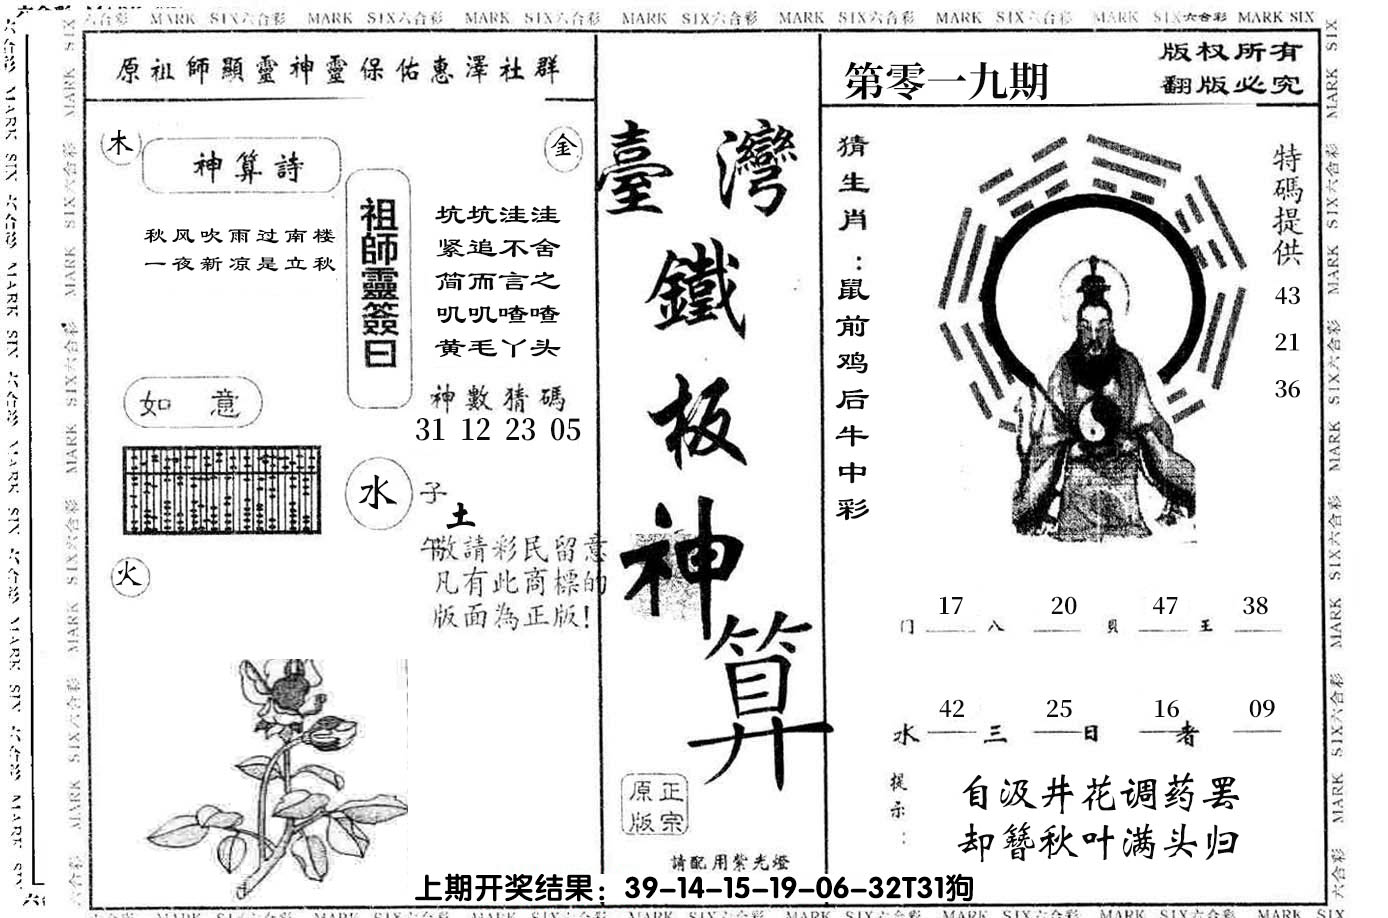 六合彩 MARK SIX六合彩 MARK SIX六合彩 MARK SIX六合彩 MARK SIX六合彩 MARK SIX六合彩 MARK SIX六合彩 MARK SIX六合彩 MARK SIX
原祖師顯靈神靈保佑惠澤社群
木
神算詩
金
秋风吹雨过南楼
一夜新凉是立秋
祖師靈簽曰
坑坑洼洼
紧追不舍
简而言之
叽叽喳喳
黄毛丫头
神數猜碼
31 12 23 05
如 意
水
子
土
午
火
敬請彩民留意
凡有此商標的
版面為正版!
臺灣
鐵
板
神
算
原正
版宗
請配用紫光燈
第零一九期
版权所有
翻版必究
猜生肖：鼠前鸡后牛中彩
特碼提供
43
21
36
门 17 八 20 貝 47 王 38
水 42 三 25 日 16 者 09
提示：
自汲井花调药罢
却簪秋叶满头归
上期开奖结果：39-14-15-19-06-32T31狗